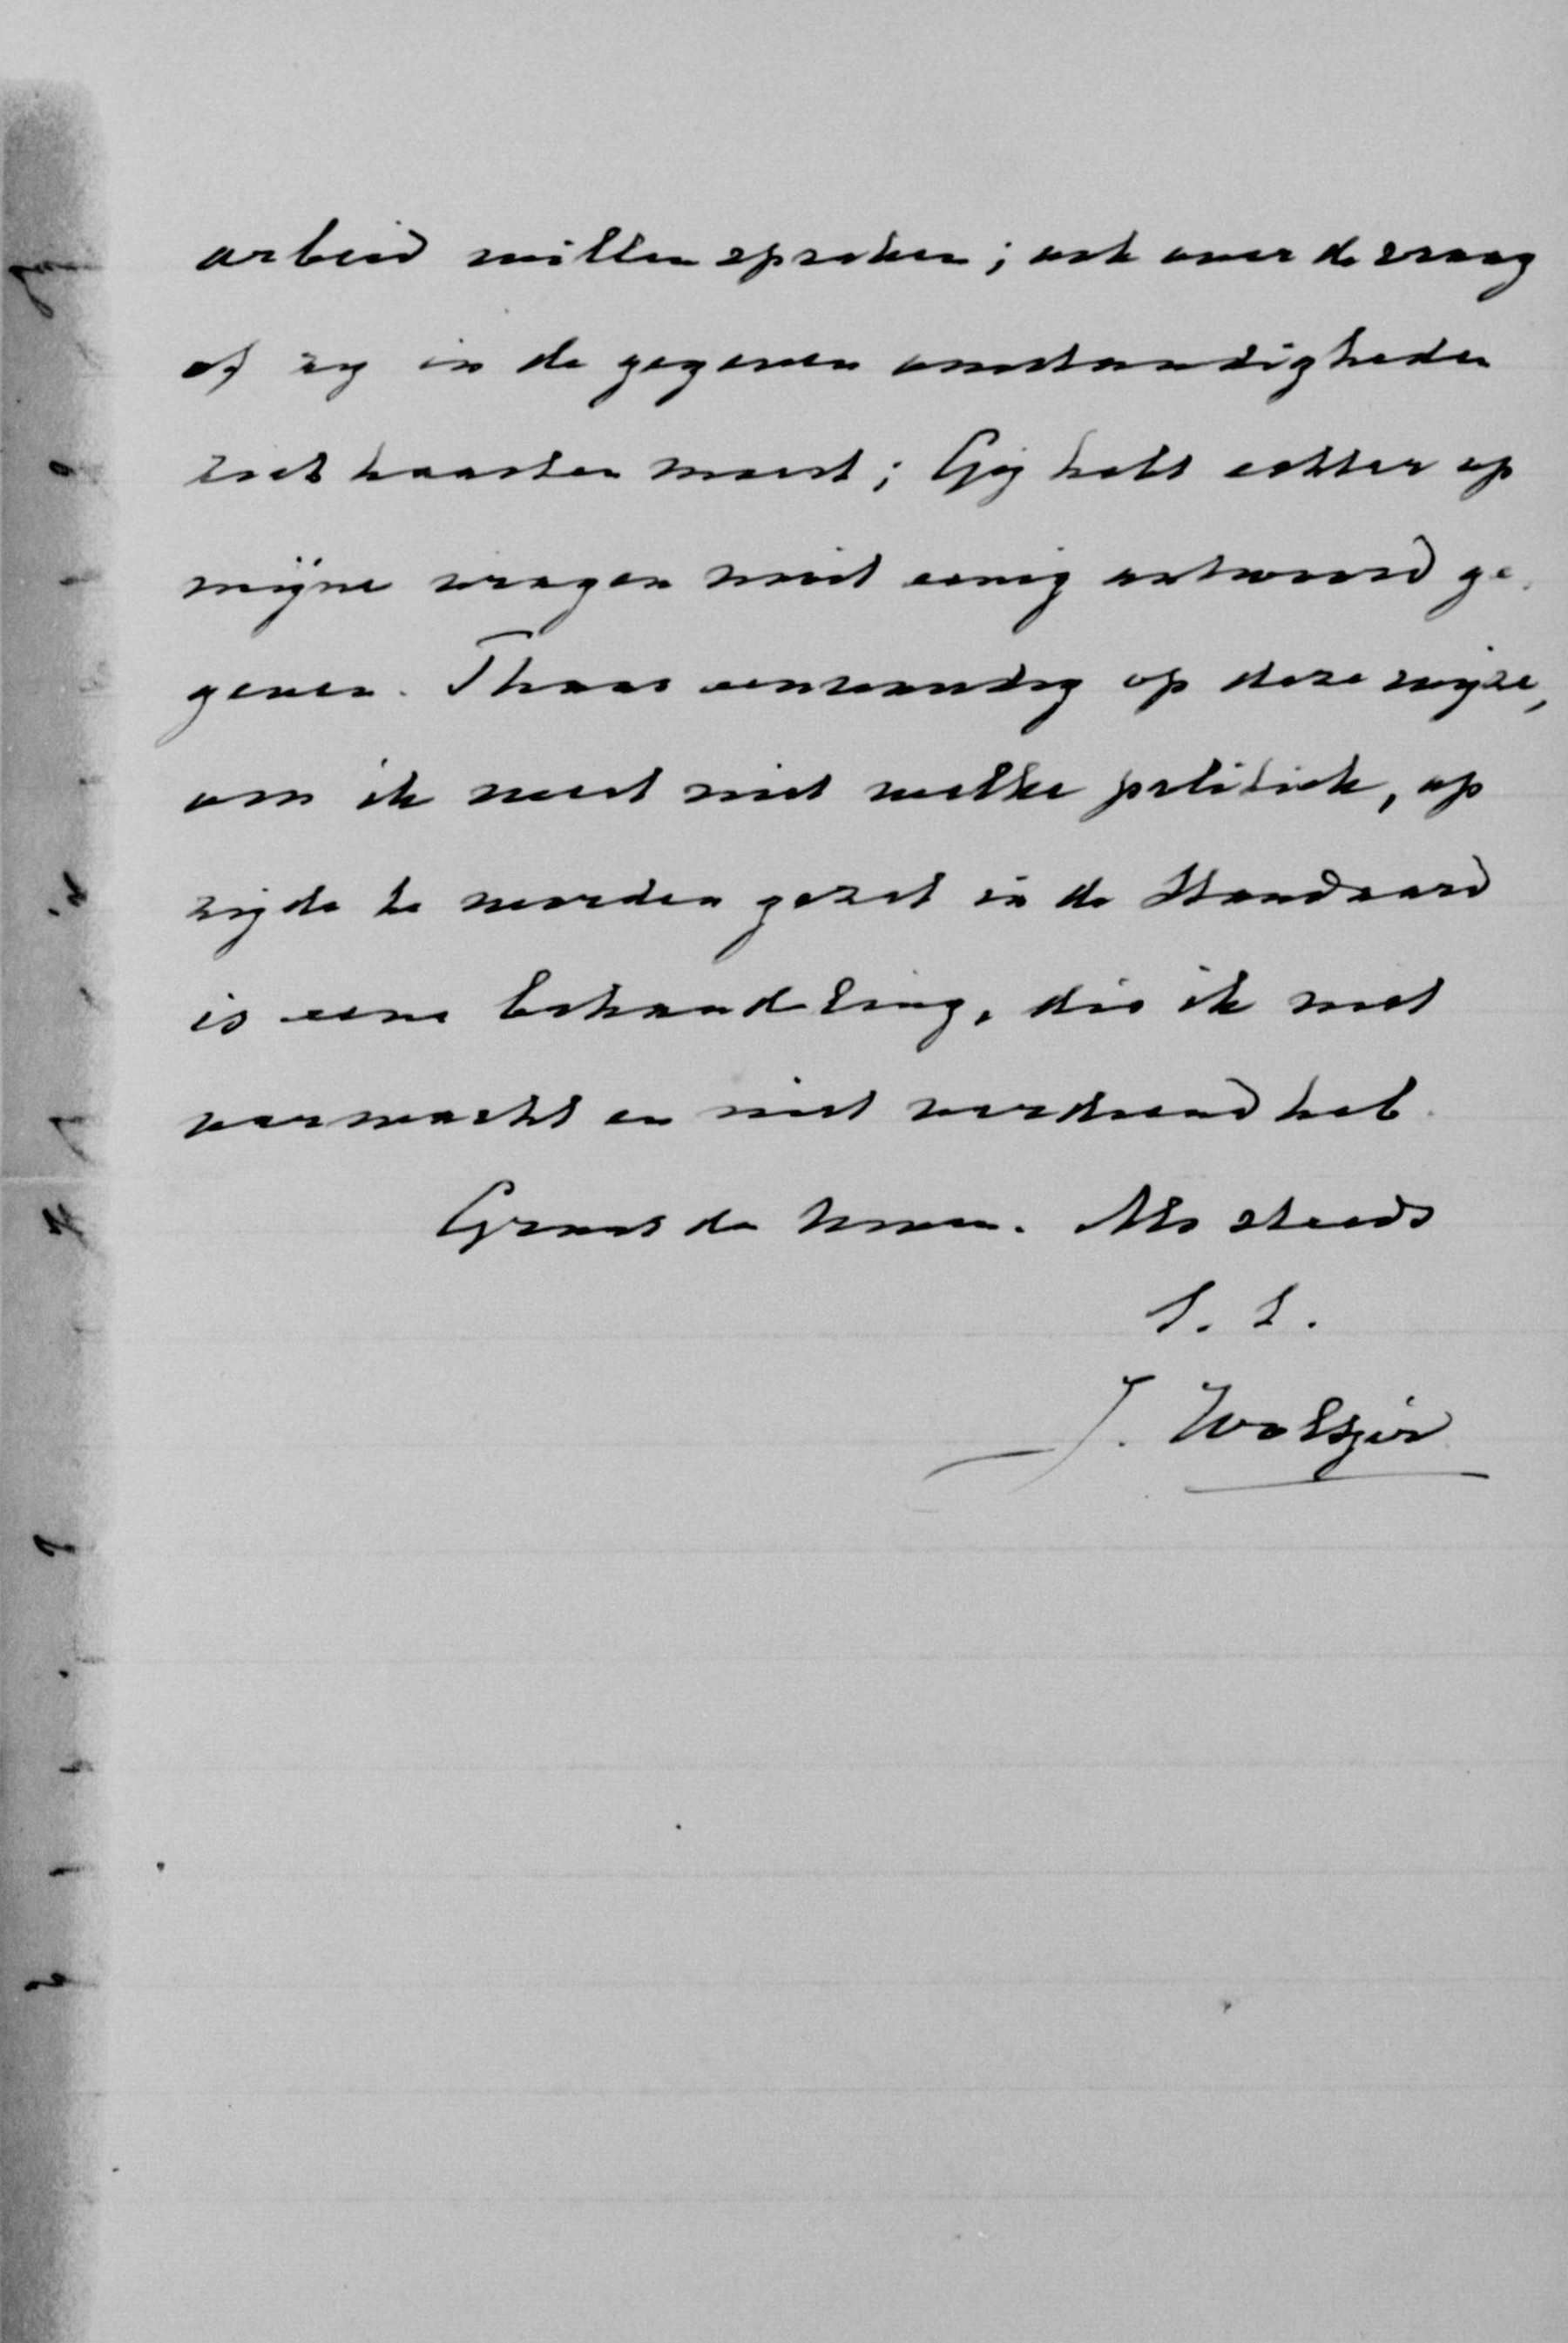 arbeid willen spreken; ook over de vraag
of zij in de gegeven omstandigheden
zich haasten moest; Gij hebt echter op
mijne vragen nooit eenig antwoord ge-
geven. Thans eenvoudig op deze wijze,
om ik weet niet welke politiek, op
zijde te worden gezet in de Standaard
is eene behandeling, die ik niet
verwacht en niet verdiend heb.
Groet de Uwen. Als steeds
t. t.
J. Woltjer